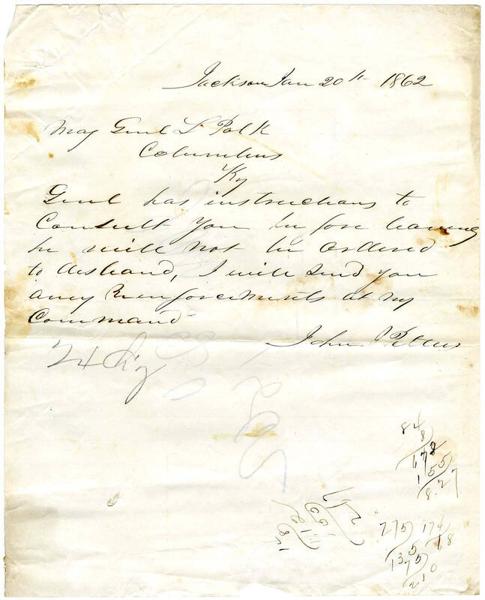 Jackson Jan 20th 1862
Maj Genl L Polk
Columbus
Ky
Genl has instructions to
Consult You before leaving
he will not be ordered
to disband, I will send you
any Reenforcements at my
Command
John Pettus
84
8
678
155
8.27
275) 174
18
135
75
210